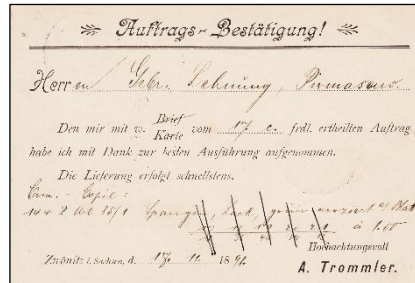 Auftrags-Bestätigung!
Herren Gebr. Lehnung, Pirmasens.
Den mir mit w. Brief
Karte vom 17 c. frdl. ertheilten Auftrag
habe ich mit Dank zur besten Ausführung aufgenommen.
Die Lieferung erfolgt schnellstens.
à 1.50
Hochachtungsvoll
Zwönitz i. Sachsen, d. 17. 11. 1891.
A. Trommler.